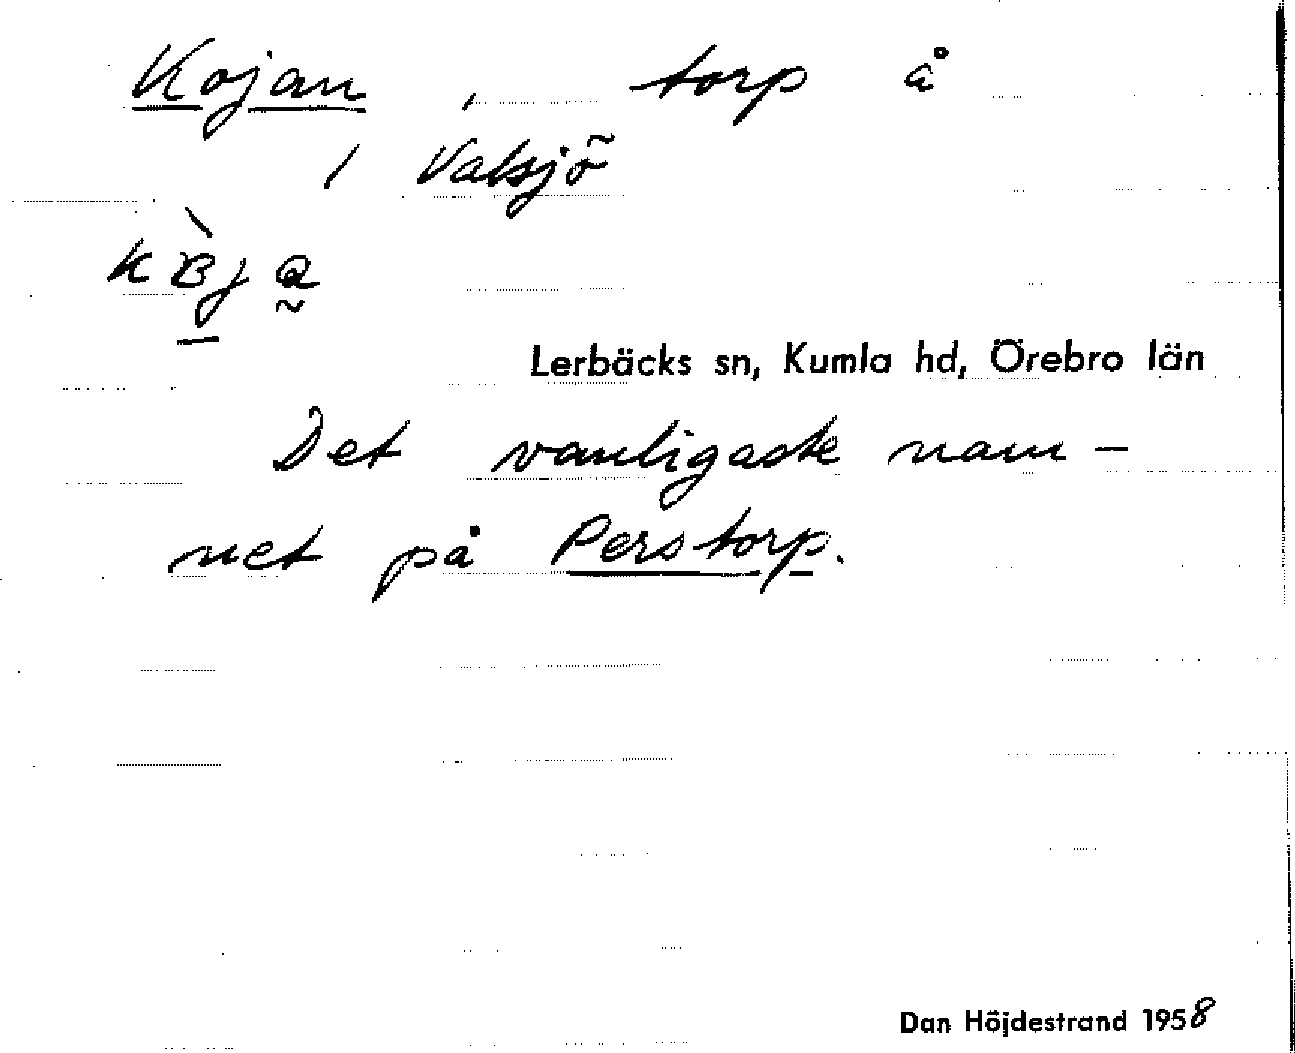 Kojan, torp å
1 Valsjö
Lerbäcks sn, Kumla hd, Örebro län
Det vanligaste nam-
net på Perstorp.
Dan Höjdestrand 1958